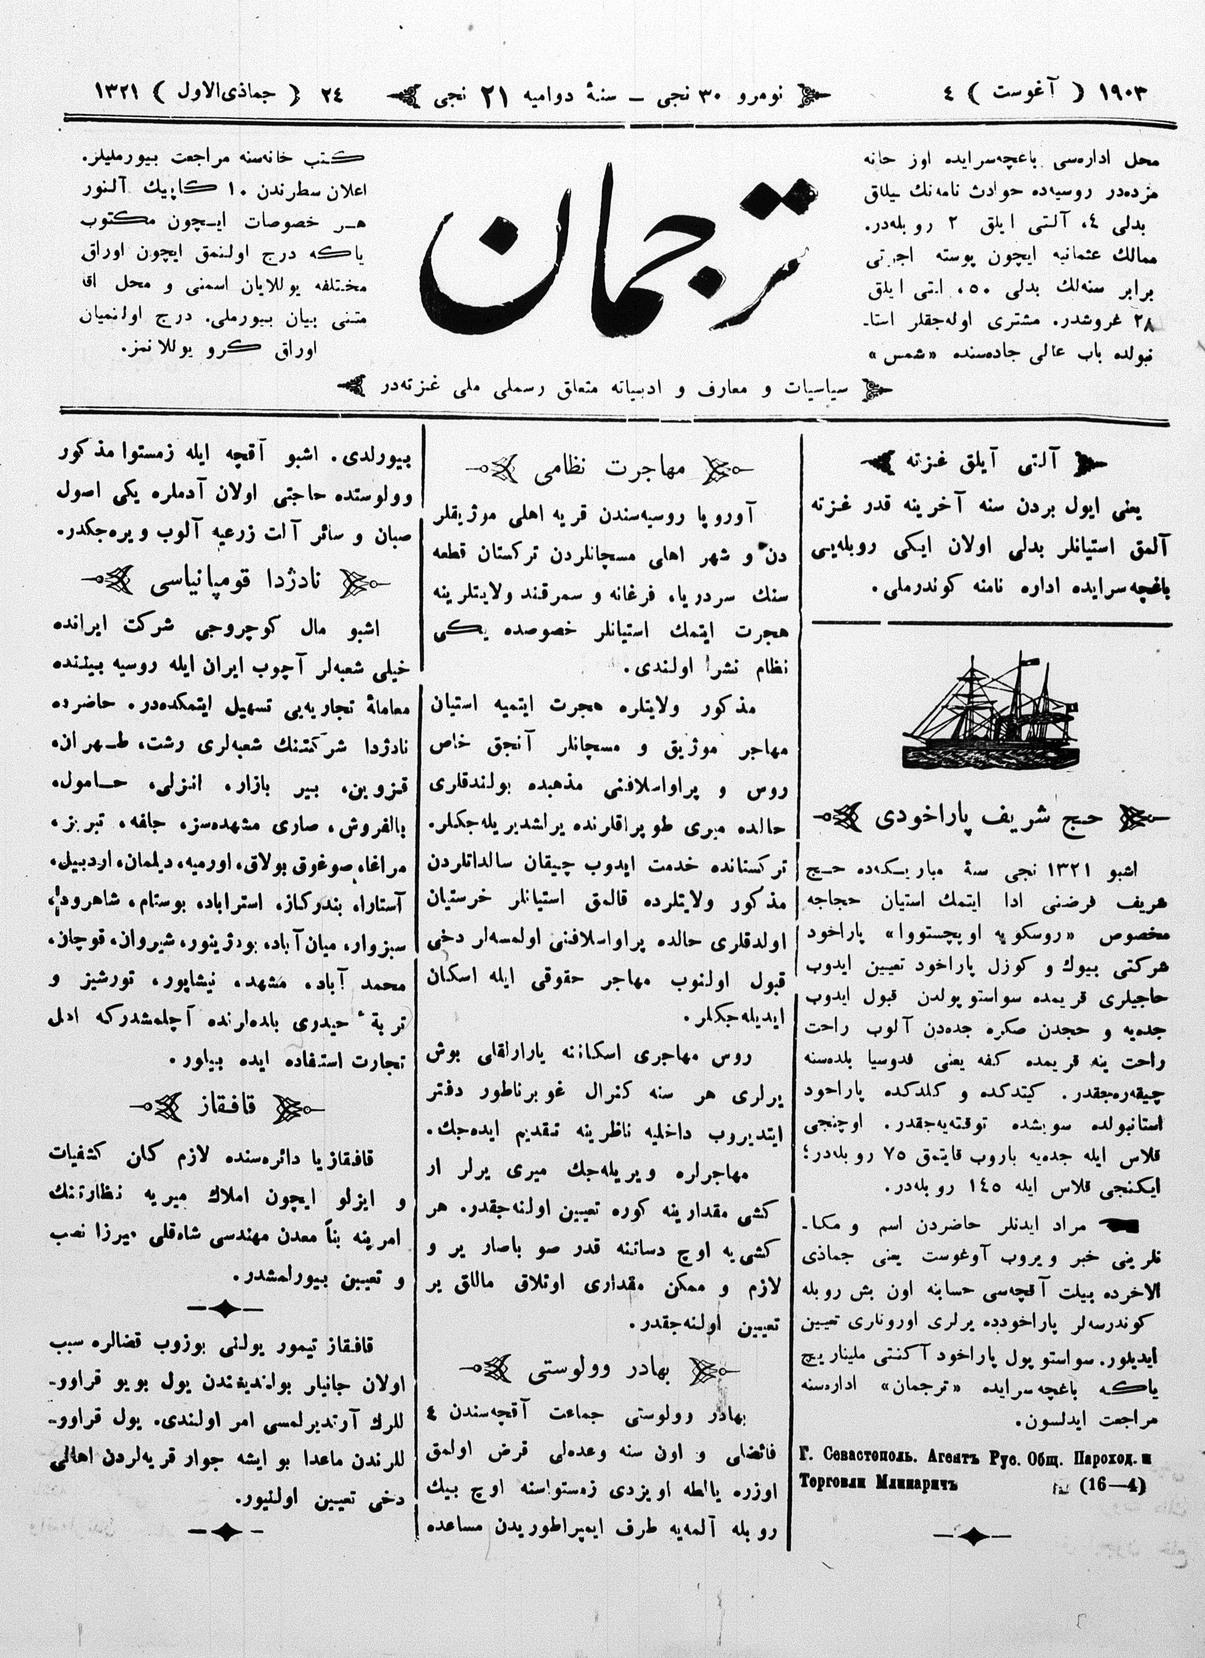 ١٩٠٣ ( آغوست ) ٤
نومرو ٣٠ نجی – سنهٔ دوامیه ٢١ نجی
٢٤ ( جماذی‌الاول ) ١٣٢١
محل اداره‌سی باغچه‌سرایده اوز خانه
مزده‌در روسیه‌ده حوادث نامه‌نك ییللق
بدلی ٤، آلتی ایلق ٢ روبله‌در.
ممالك عثمانیه ایچون پوسته اجرتی
برابر سنه‌لك بدلی ٥٠، التی ایلق
٢٨ غروشدر. مشتری اوله‌جقلر استا-
نبولده باب عالی جاده‌سنده «شمس»
ترجمان
كتب خانه‌سنه مراجعت بیورملیلر.
اعلان سطرندن ١٠ كاپیك آلنور
هر خصوصات ایچون مكتوب
یاكه درج اولنمق ایچون اوراق
مختلفه یوللایان اسمنی و محل اقا
متنی بیان بیورملی. درج اولنمیان
اوراق كرو یوللانمز.
سیاسیات و معارف و ادبیاته متعلق رسملی ملی غزته‌در
آلتی آیلق غزته
یعنی ایول بردن سنه آخرینه قدر غزته
آلمق استیانلر بدلی اولان ایكی روبله‌یی
باغچه‌سرایده اداره نامنه كوندرملی.
حج شریف پاراخودی
اشبو ١٣٢١ نجی سنهٔ مباركه‌ده حج
شریف فرضنی ادا ایتمك استیان حجاجه
مخصوص «روسكویه اوبچستووا» پاراخود
شركتی بیوك و كوزل پاراخود تعیین ایدوب
حاجیلری قریمده سواستوپولدن قبول ایدوب
جدیه و حجدن صكره جده‌دن آلوب راحت
راحت ینه قریمده كفه یعنی فدوسیا بلده‌سنه
چیقه‌ره‌جقدر. كیتدكده و كلدكده پاراخود
استانبولده سویشده توقته‌یه‌جقدر. اوچنجی
قلاس ایله جدیه باروب قایتمق ٧٥ روبله‌در؛
ایكنجی قلاس ایله ١٤٥ روبله‌در.
مراد ایدنلر حاضردن اسم و مكا-
نلرینی خبر ویروب آوغوست یعنی جماذی
الاخرده بیلت آقچه‌سی حسابنه اون بش روبله
كوندرسه‌لر پاراخودده یرلری اوروناری تعیین
ایدیلور. سواستوپول پاراخود آكنتی ملیناریچ
یاكه باغچه‌سرایده «ترجمان» اداره‌سنه
مراجعت ایدلسون.
Г. Севастополь. Агентъ Рус. Общ. Пароход. и
Торговли Маинаричъ (16—4)
مهاجرت نظامی
آوروپا روسیه‌سندن قریه اهلی موژیقلر
دن و شهر اهلی مسچانلردن تركستان قطعه
سنك سردریا، فرغانه و سمرقند ولایتلرینه
هجرت ایتمك استیانلر خصوصده یكی
نظام نشر اولندی.
مذكور ولایتلره هجرت ایتمیه استیان
مهاجر موژیق و مسچانلر آنجق خاص
روس و پراواسلافنی مذهبده بولندقلری
حالده میری طوپراقلرنده یرلشدیریله‌جكلر.
تركستانده خدمت ایدوب چیقان سالداتلردن
مذكور ولایتلرده قالمق استیانلر خرستیان
اولدقلری حالده پراواسلافنی اولمسه‌لر دخی
قبول اولنوب مهاجر حقوقی ایله اسكان
ایدیله‌جكلر.
روس مهاجری اسكاننه یارارلقلی بوش
یرلری هر سنه كنرال غوبرناطور دفتر
ایتدیروب داخلیه ناظرینه تقدیم ایده‌جك.
مهاجرلره ویریله‌جك میری یرلر ار
كشی مقدارینه كوره تعیین اولنه‌جقدر. هر
كشی‌یه اوچ دساتنه قدر صو باصار یر و
لازم و ممكن مقداری اوتلاق ماللق یر
تعیین اولنه‌جقدر.
بهادر وولوستی
بهادر وولوستی جماعت آقچه‌سندن ٤
فائضلی و اون سنه وعده‌لی قرض اولمق
اوزره یالطه اویزدی زمستواسنه اوچ بیك
روبله آلمه‌یه طرف ایمپراطوریدن مساعده
بیورلدی. اشبو آقچه ایله زمستوا مذكور
وولوستده حاجتی اولان آدملره یكی اصول
صبان و سائر آلت زرعیه آلوب ویره‌جكدر.
نادژدا قومپانیاسی
اشبو مال كوچروجی شركت ایرانده
خیلی شعبه‌لر آچوب ایران ایله روسیه بیننده
معاملهٔ تجاریه‌یی تسهیل ایتمكده‌در. حاضرده
نادژدا شركتنك شعبه‌لری رشت، طهران،
قزوین، بیر بازار، انزلی، حامول،
بالفروش، صاری مشهدسز، جلفه، تبریز،
مراغا، صوغوق بولاق، اورمیه، دیلمان، اردبیل،
آستارا، بندركاز، استراباد، بوستام، شاهرود،
سبزوار، میان‌آباد، بودژینور، شیروان، قوچان،
محمد آباد، مشهد، نیشاپور، تورشیز و
تربهٔ حیدری بلده‌لرنده آچلمشدركه اهل
تجارت استفاده ایده بیلور.
قافقاز
قافقازیا دائره‌سنده لازم كان كشفیات
و ایزلو ایچون املاك میریه نظارتنك
امرینه بناً معدن مهندسی شاه‌قلی میرزا نصب
و تعیین بیورلمشدر.
قافقاز تیمور یولنی بوزوب قضالره سبب
اولان جانیلر بولندیغندن یول بویو قراوو-
للرك آرتدیرلمسی امر اولندی. یول قراوو-
للرندن ماعدا بو ایشه جوار قریه‌لردن اهالی
دخی تعیین اولنیور.